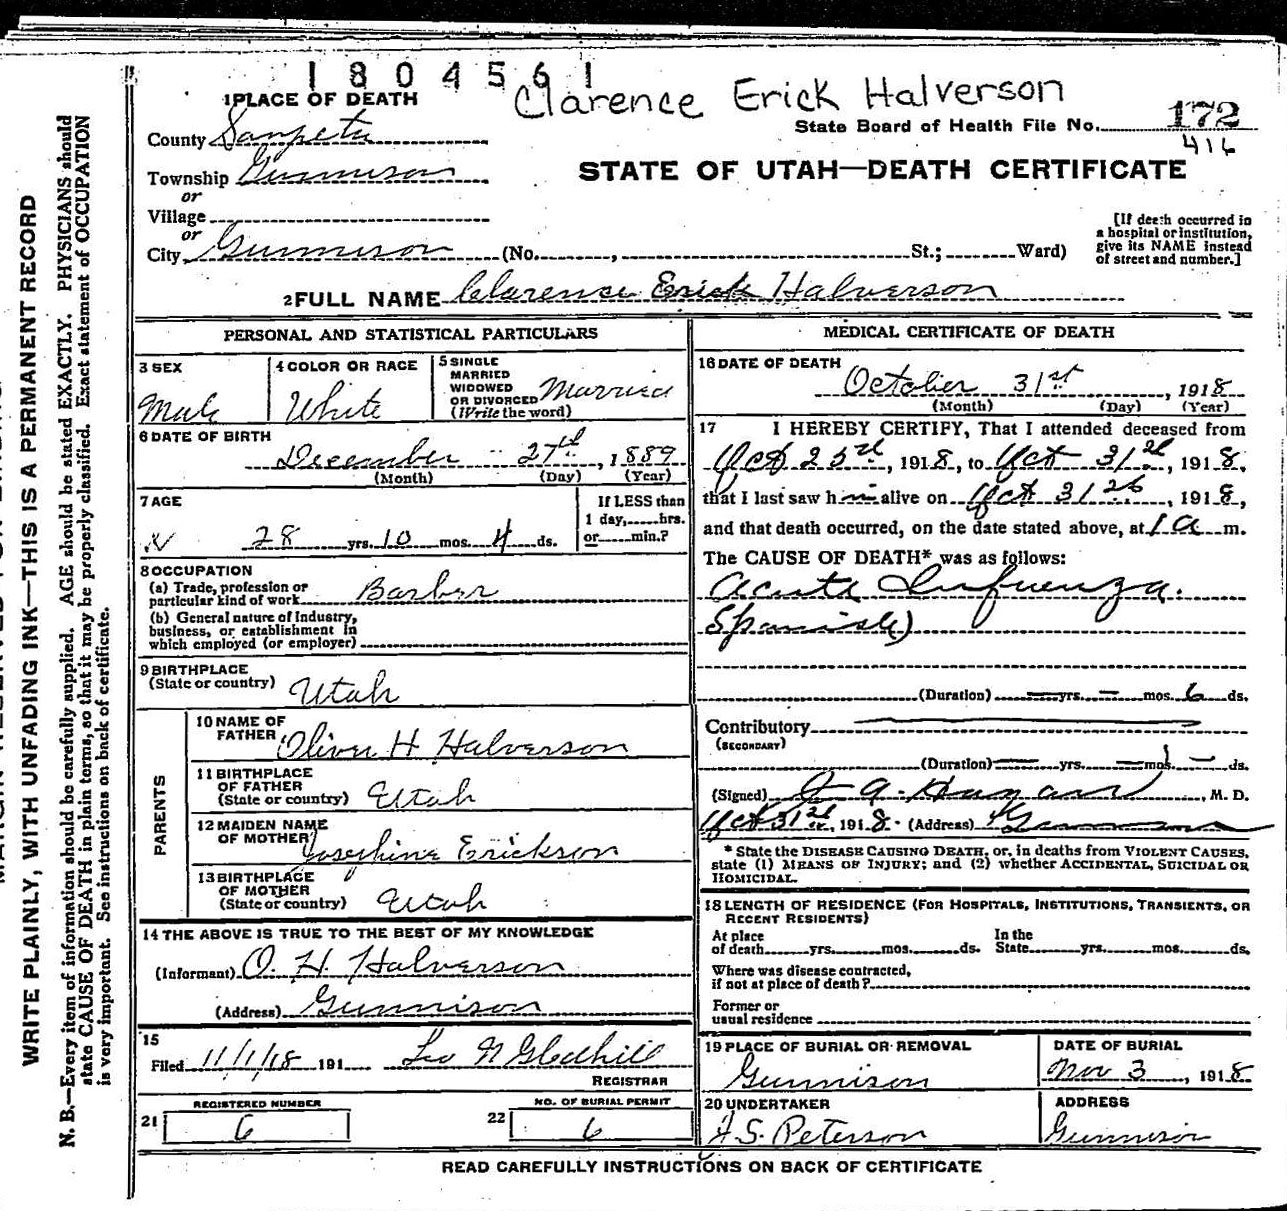 1804561
Clarence Erick Halverson
1 PLACE OF DEATH
State Board of Health File No. 172
416
County Sanpete
Township Gunnison
or
Village
or
City Gunnison (No. , St.; Ward)
STATE OF UTAH—DEATH CERTIFICATE
[If death occurred in
a hospital or institution,
give its NAME instead
of street and number.]
2 FULL NAME Clarence Erick Halverson
PERSONAL AND STATISTICAL PARTICULARS
3 SEX
Male
4 COLOR OR RACE
White
5 SINGLE
MARRIED
WIDOWED
OR DIVORCED
(Write the word)
Married
6 DATE OF BIRTH
December 27th, 1889
(Month) (Day) (Year)
7 AGE
28 yrs. 10 mos. 4 ds.
If LESS than
1 day, hrs.
or min.?
8 OCCUPATION
(a) Trade, profession or
particular kind of work Barber
(b) General nature of industry,
business, or establishment in
which employed (or employer)
9 BIRTHPLACE
(State or country) Utah
PARENTS
10 NAME OF
FATHER Oliver H Halverson
11 BIRTHPLACE
OF FATHER
(State or country) Utah
12 MAIDEN NAME
OF MOTHER Josephine Erickson
13 BIRTHPLACE
OF MOTHER
(State or country) Utah
14 THE ABOVE IS TRUE TO THE BEST OF MY KNOWLEDGE
(Informant) O. H. Halverson
(Address) Gunnison
15
Filed 11/1/18 191
Leo N Gledhill
REGISTRAR
REGISTERED NUMBER
21 6
NO. OF BURIAL PERMIT
22 6
MEDICAL CERTIFICATE OF DEATH
16 DATE OF DEATH
October 31st, 1918
(Month) (Day) (Year)
17 I HEREBY CERTIFY, That I attended deceased from
Oct 25, 1918, to Oct 31, 1918,
that I last saw him alive on Oct 31, 1918,
and that death occurred, on the date stated above, at 1 a m.
The CAUSE OF DEATH* was as follows:
Acute Influenza.
Spanish)
(Duration) yrs. mos. 6 ds.
Contributory
(SECONDARY)
(Duration) yrs. mos. ds.
(Signed) , M. D.
Oct 31, 1918. (Address) Gunnison
* State the DISEASE CAUSING DEATH, or, in deaths from VIOLENT CAUSES,
state (1) MEANS OF INJURY; and (2) whether ACCIDENTAL, SUICIDAL OR
HOMICIDAL.
18 LENGTH OF RESIDENCE (FOR HOSPITALS, INSTITUTIONS, TRANSIENTS, OR
RECENT RESIDENTS)
At place
of death yrs. mos. ds.
In the
State yrs. mos. ds.
Where was disease contracted,
if not at place of death?
Former or
usual residence
19 PLACE OF BURIAL OR REMOVAL
Gunnison
DATE OF BURIAL
Nov 3, 1918
20 UNDERTAKER
ADDRESS
Peterson
Gunnison
READ CAREFULLY INSTRUCTIONS ON BACK OF CERTIFICATE
WRITE PLAINLY, WITH UNFADING INK—THIS IS A PERMANENT RECORD
N. B.—Every item of information should be carefully supplied. AGE should be stated EXACTLY. PHYSICIANS should
state CAUSE OF DEATH in plain terms, so that it may be properly classified. Exact statement of OCCUPATION
is very important. See instructions on back of certificate.